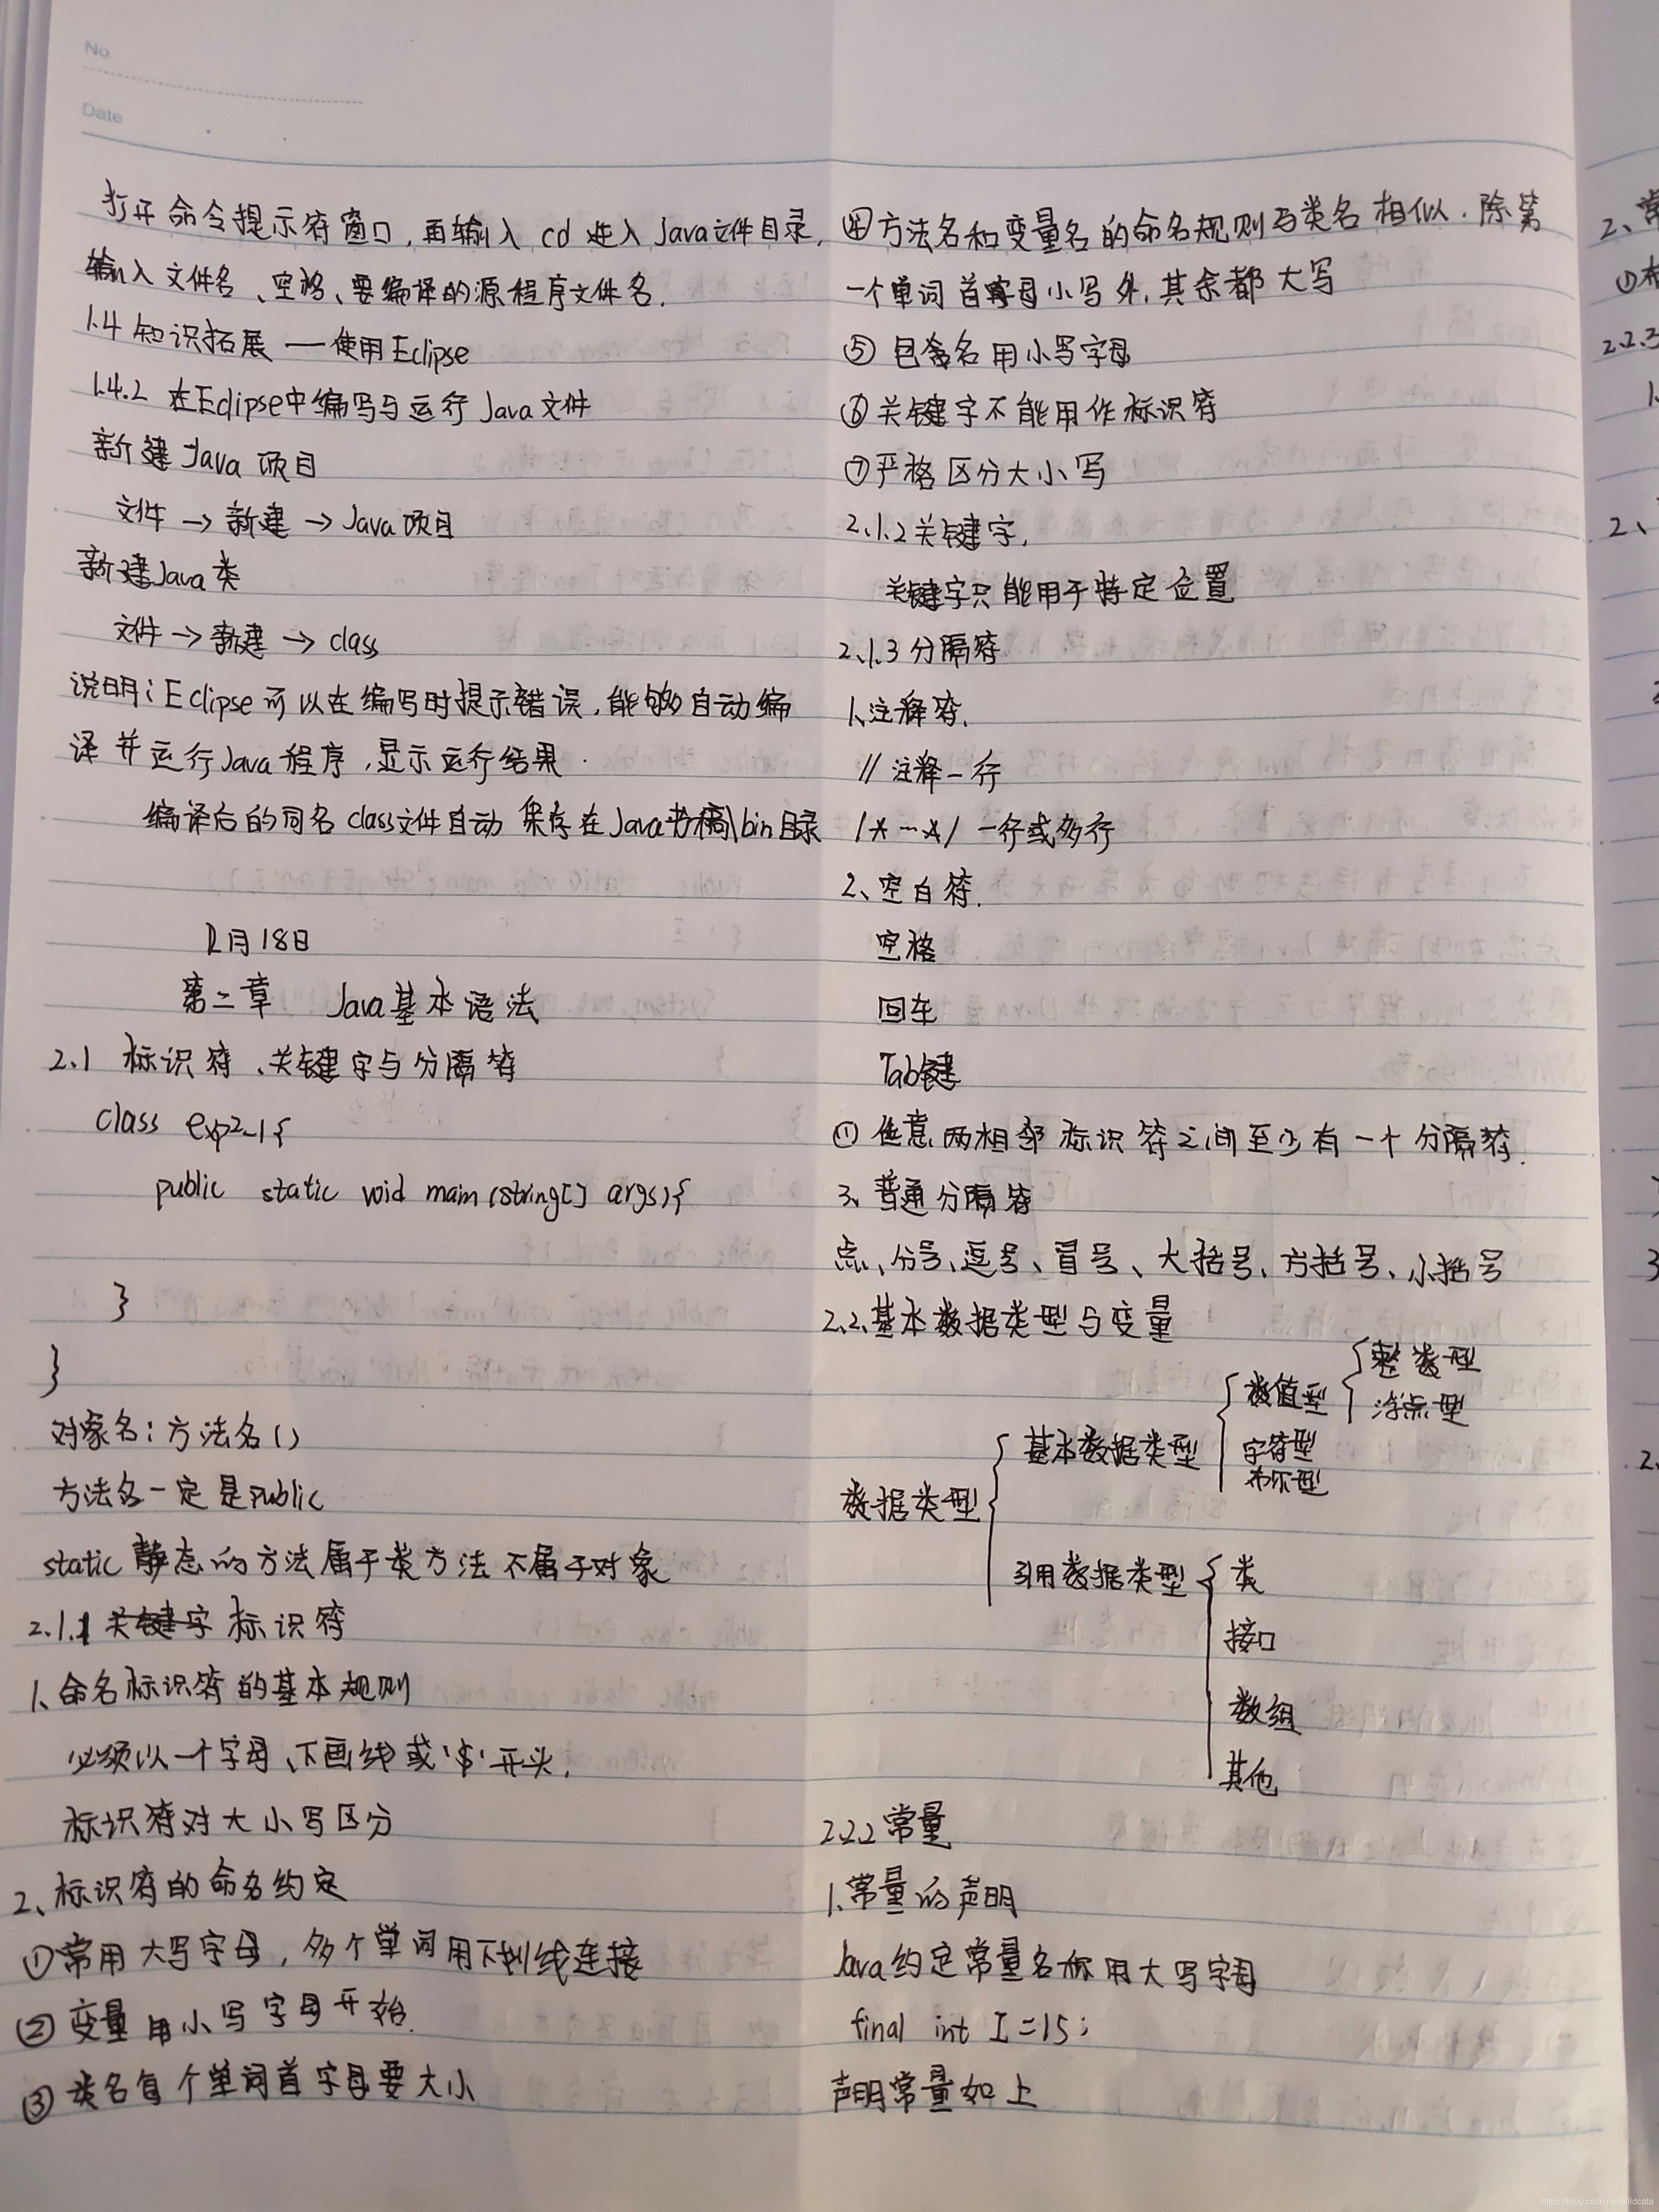 No
Date
打开命令提示符窗口,再输入 cd 进入 Java文件目录,
输入文件名、空格、要编译的源程序文件名.
1.4 知识拓展 — 使用Eclipse
1.4.2 在Eclipse中编写与运行 Java文件
新建 Java 项目
文件 → 新建 → Java项目
新建Java类
文件 → 新建 → class
说明:Eclipse可以在编写时提示错误,能够自动编
译并运行Java程序,显示运行结果.
编译后的同名class文件自动 保存在Java书稿\bin目录
12月18日
第二章 Java基本语法
2.1 标识符、关键字与分隔符
class exp2-1{
public static void main(string[] args){
}
}
对象名:方法名()
方法名一定是public
static 静态的方法属于类方法不属于对象
2.1.1 关键字 标识符
1、命名标识符的基本规则
必须以一个字母、下画线或'$'开头,
标识符对大小写区分
2、标识符的命名约定
①常用大写字母,多个单词用下划线连接
②变量用小写字母开始.
③类名每个单词首字母要大小
④方法名和变量名的命名规则与类名相似.除第
一个单词首字母小写外,其余都大写
⑤ 包名用小写字母
⑥关键字不能用作标识符
⑦严格区分大小写
2.1.2关键字,
关键字只能用于特定位置
2.1.3分隔符
1、注释符,
// 注释一行
/*…*/ 一行或多行
2、空白符.
空格
回车
Tab键
① 任意两相邻标识符之间至少有一个分隔符.
3、普通分隔符
点、分号、逗号、冒号、大括号、方括号、小括号
2.2.基本数据类型与变量
整数型
数值型
浮点型
基本数据类型
字符型
布尔型
数据类型
引用数据类型
类
接口
数组
其他
2.2.2常量
1.常量的声明
Java约定常量名称用大写字母
final int I=15;
声明常量如上
2、常
①
2.2.3
1.
2、
3
2.
https://blog.csdn.net/wildcata